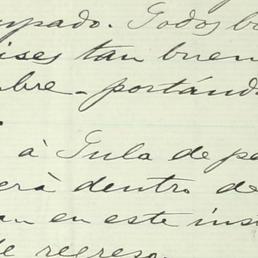 upado. Todos bu
ises tan buen
bre - portánd
à Gula de pe
erà dentro de
an en este ins
de regreso.